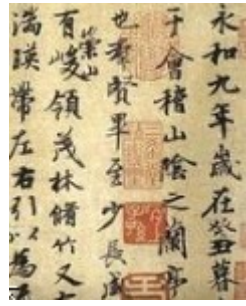 永和九年歲在癸丑暮
于會稽山陰之蘭亭
也羣賢畢至少長咸
有崇山峻領茂林脩竹又
湍暎帶左右引以為